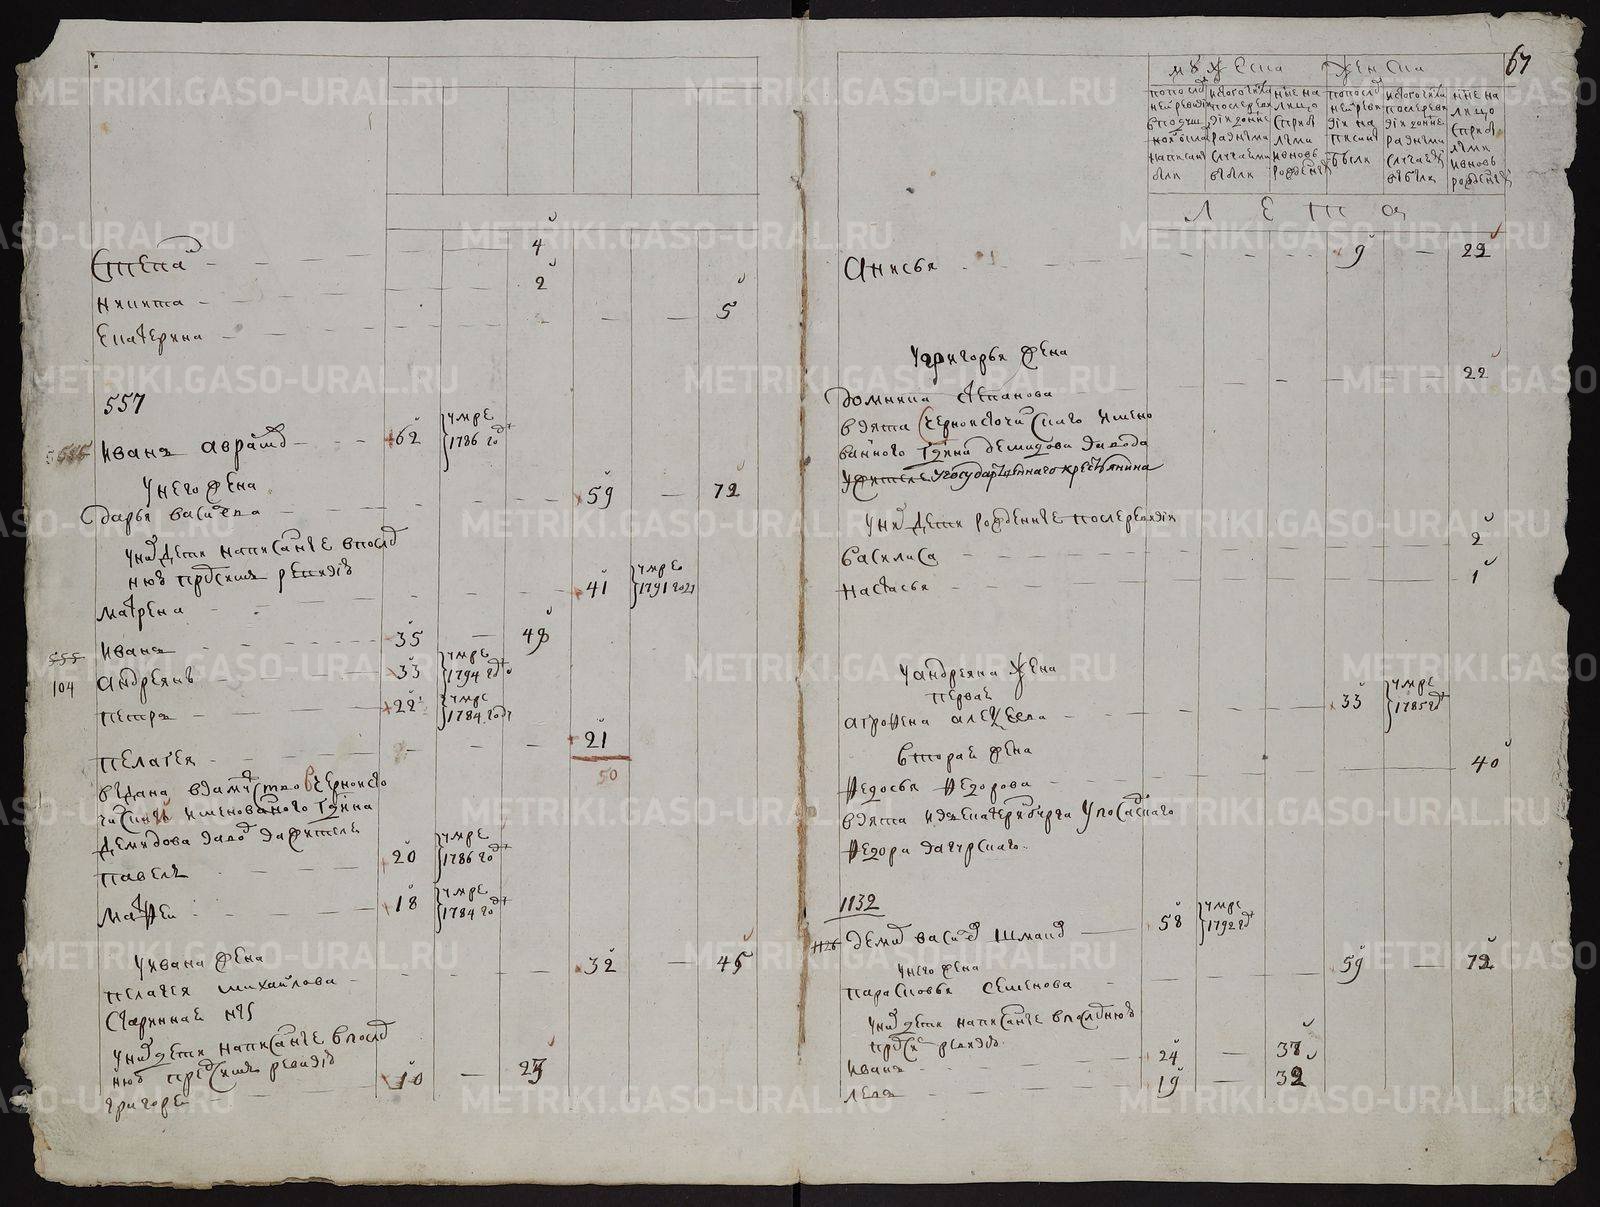 Степан 4
никита 2
Екатерина 5
557
Иванъ авраамов 62 умре 1786 год
У него жена
Дарья васильева 59 72
у них дети написанные в послед
нюю пред сим ревизию
матрена 41 умре 1791 году
Иванъ 35 48
555
104
андреянъ 33 умре 1794 году
петръ 22 умре 1784 году
пелагея 21
50
выдана в замужство в черноисто
чинской именованного Гдина
Демидова завод за жителя
павелъ 20 умре 1786 году
матфеи 18 умре 1784 году
у ивана жена
пелагея михаилова 32 45
старинная
у них дети написанные в послед
нюю пред сим ревизию
григореи 10 23
67
мужеска женска
по послед
ней ревизии
в подуш
ной оклад
написано
были
из того числа
после реви
зии до ныне
разными
случаями
выбыли
ныне на
лицо
с прибы
лыми
и вновь
рожденными
по послед
ней реви
зии на
писано
были
из того числа
после реви
зии до ныне
разными
случаями
выбыли
ныне на
лицо
с прибы
лыми
и вновь
рожденными
Л Е Т А
анисья 9 22
У григорья жена
домника степанова 22
взята с черноисточинского имено
ванного Гдина демидова завода
у жителя у государственнаго крестьянина
у них дети рожденные после ревизии
василиса 2
настасья 1
У андреяна жена
первая
агрофена алексеева 33 умре 1785 год
вторая жена
федосья федорова 40
взята из екатеринбурга у посадскаго
федора загурскаго
1132
1126
демид васильев шмаков 58 умре 1792 год
у него жена
парасковья семенова 59 72
у них дети написанные в последнюю
пред сим ревизию
Иванъ 24 37
левъ 19 32
METRIKI.GASO-URAL.RU